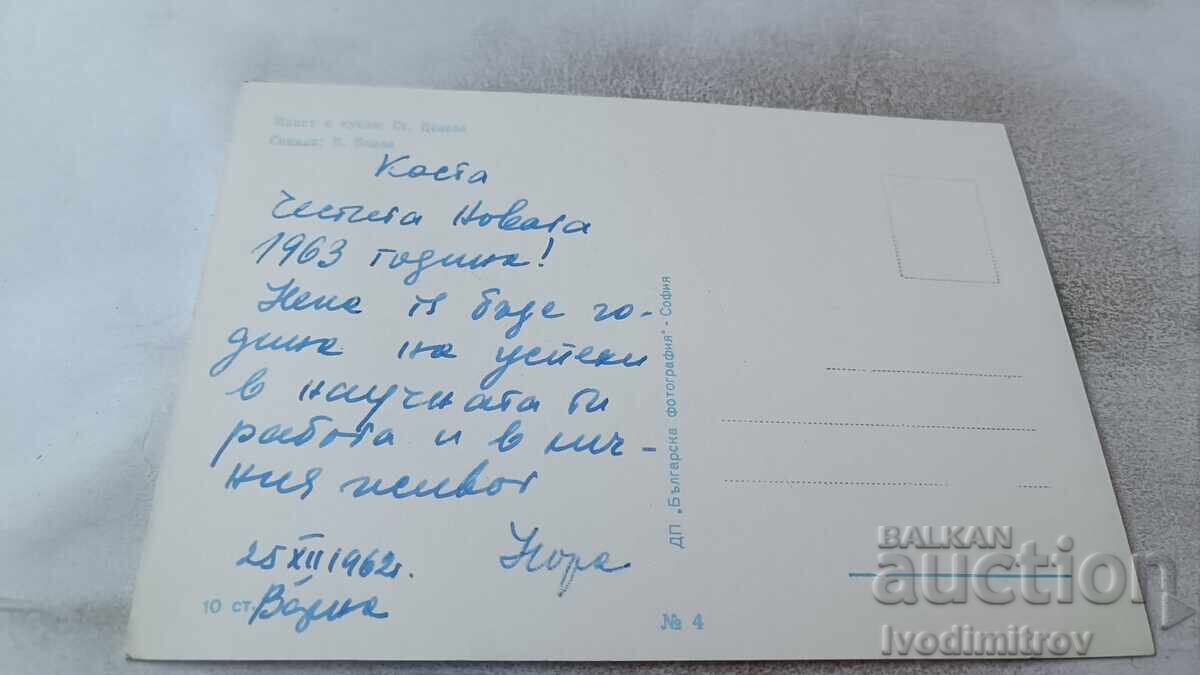 Ст.
Снимка:
Коста
Честита Новата
1963 година!
Нека тя бъде го-
дина на успехи
в научната ти
работа и в лич-
ния живот
25 XII 1962 г.
Нора
Варна
10 ст.
№ 4
ДП „Българска фотография" - София
BALKAN
auction
Ivodimitrov